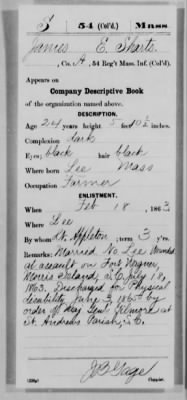 S 54 (Col'd.) Mass.
James E. Sharts
, Co. A, 54 Reg't Mass. Inf. (Col'd.)
Appears on
Company Descriptive Book
of the organization named above.
DESCRIPTION.
Age 24 years; height 5 feet 10½ inches.
Complexion dark
Eyes; black hair black
Where born Lee Mass
Occupation Farmer
ENLISTMENT.
When Feb 18, 1863
Where Lee
By whom Lt. Appleton; term 3 y'rs.
Remarks: Married No. Lee Wounded
at assault on Fort Wagner
Morris Island, S.C. July 18,
1863. Discharged for Physical
disability June 3, 1865 by
order of Maj Genl Gilmore at
St. Andrews Parish, S.C.
J B Gage
Copyist.